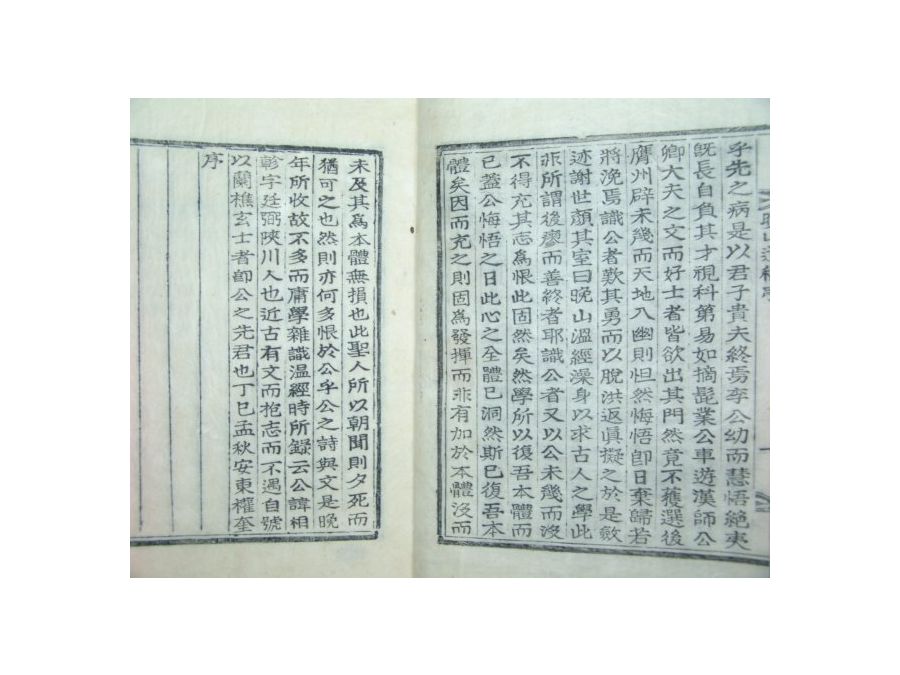 乎先之病是以君子貴夫終焉李公幼而慧悟絶夷
旣長自負其才視科第易如摘髭業公車遊漢師公
卿大夫之文而好士者皆欲出其門然竟不獲選後
膺州辟未幾而天地入幽則怛然悔悟卽日棄歸若
將浼焉識公者歎其勇而以脫洪返眞擬之於是斂
迹謝世顔其室曰晩山溫經澡身以求古人之學此
非所謂後瘳而善終者耶識公者又以公未幾而沒
不得充其志爲恨此固然矣然學所以復吾本體而
已蓋公悔悟之日此心之全體已洞然斯已復吾本
體矣因而充之則固爲發揮而非有加於本體沒而
未及其爲本體無損也此聖人所以朝聞則夕死而
猶可之也然則亦何多恨於公乎公之詩與文是晩
年所收故不多而庸學雜識溫經時所錄云公諱相
軫字廷弼陜川人也近古有文而抱志而不遇自號
以蘭樵玄士者卽公之先君也丁巳孟秋安東權奎
序